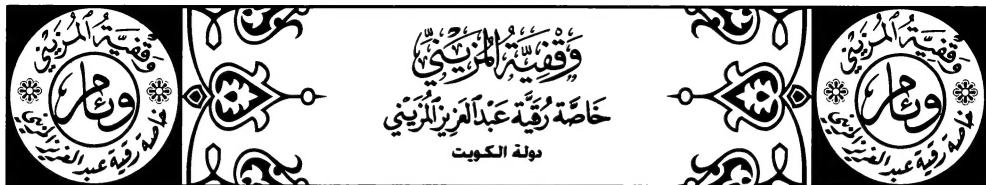 وَقْفِيَّةُ الْمُزَيْنِيّ
خَاصَّة رُقَيَّة عَبْد الْعَزِيز الْمُزَيْنِي
دولة الكويت
وَقْفِيَّةُ الْمُزَيْنِي
خاصة رقية عبد العزيز المزيني
وَقْفِيَّةُ الْمُزَيْنِي
خاصة رقية عبد العزيز المزيني